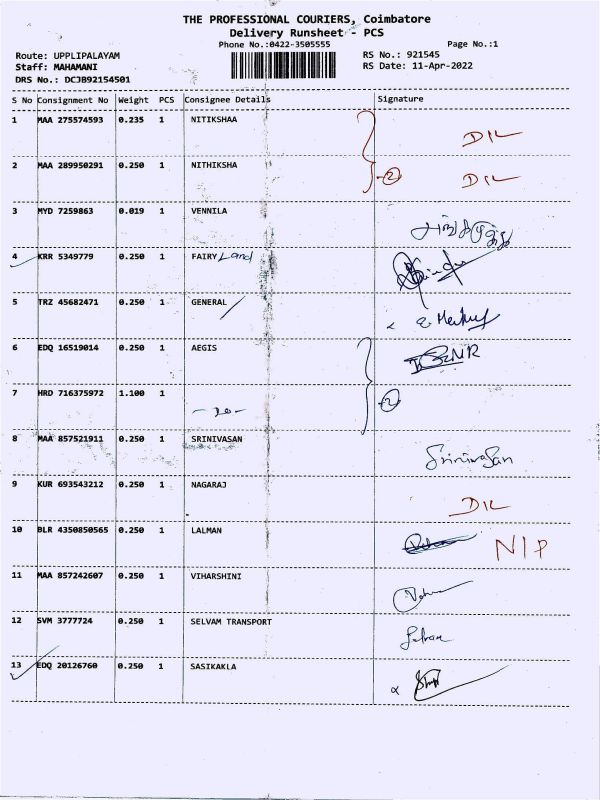 THE PROFESSIONAL COURIERS, Coimbatore
Delivery Runsheet - PCS
Phone No.:0422-3505555
Page No.:1
Route: UPPLIPALAYAM
RS No.: 921545
Staff: MAHAMANI
RS Date: 11-Apr-2022
DRS No.: DCJB92154501
S No Consignment No Weight PCS Consignee Details Signature
1 MAA 275574593 0.235 1 NITIKSHAA DIL
2 MAA 289950291 0.250 1 NITHIKSHA 2 DIL
3 MYD 7259863 0.019 1 VENNILA
4 KRR 5349779 0.250 1 FAIRY Land
5 TRZ 45682471 0.250 1 GENERAL
6 EDQ 16519014 0.250 1 AEGIS
7 HRD 716375972 1.100 1 2
8 MAA 857521911 0.250 1 SRINIVASAN Srinivasan
9 KUR 693543212 0.250 1 NAGARAJ DIL
10 BLR 4350850565 0.250 1 LALMAN NIP
11 MAA 857242607 0.250 1 VIHARSHINI
12 SVM 3777724 0.250 1 SELVAM TRANSPORT
13 EDQ 20126760 0.250 1 SASIKAKLA